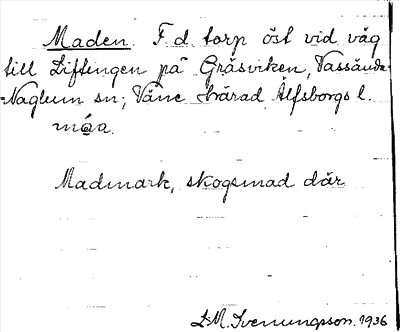 Maden. F d torp öst vid väg
till Diftingen på Gräsviken, Vassända-
-Naglum sn; Väne härad Älfsborgs l.
måa.
Madmark, skogsmad där
L.M. Svenungsson. 1936